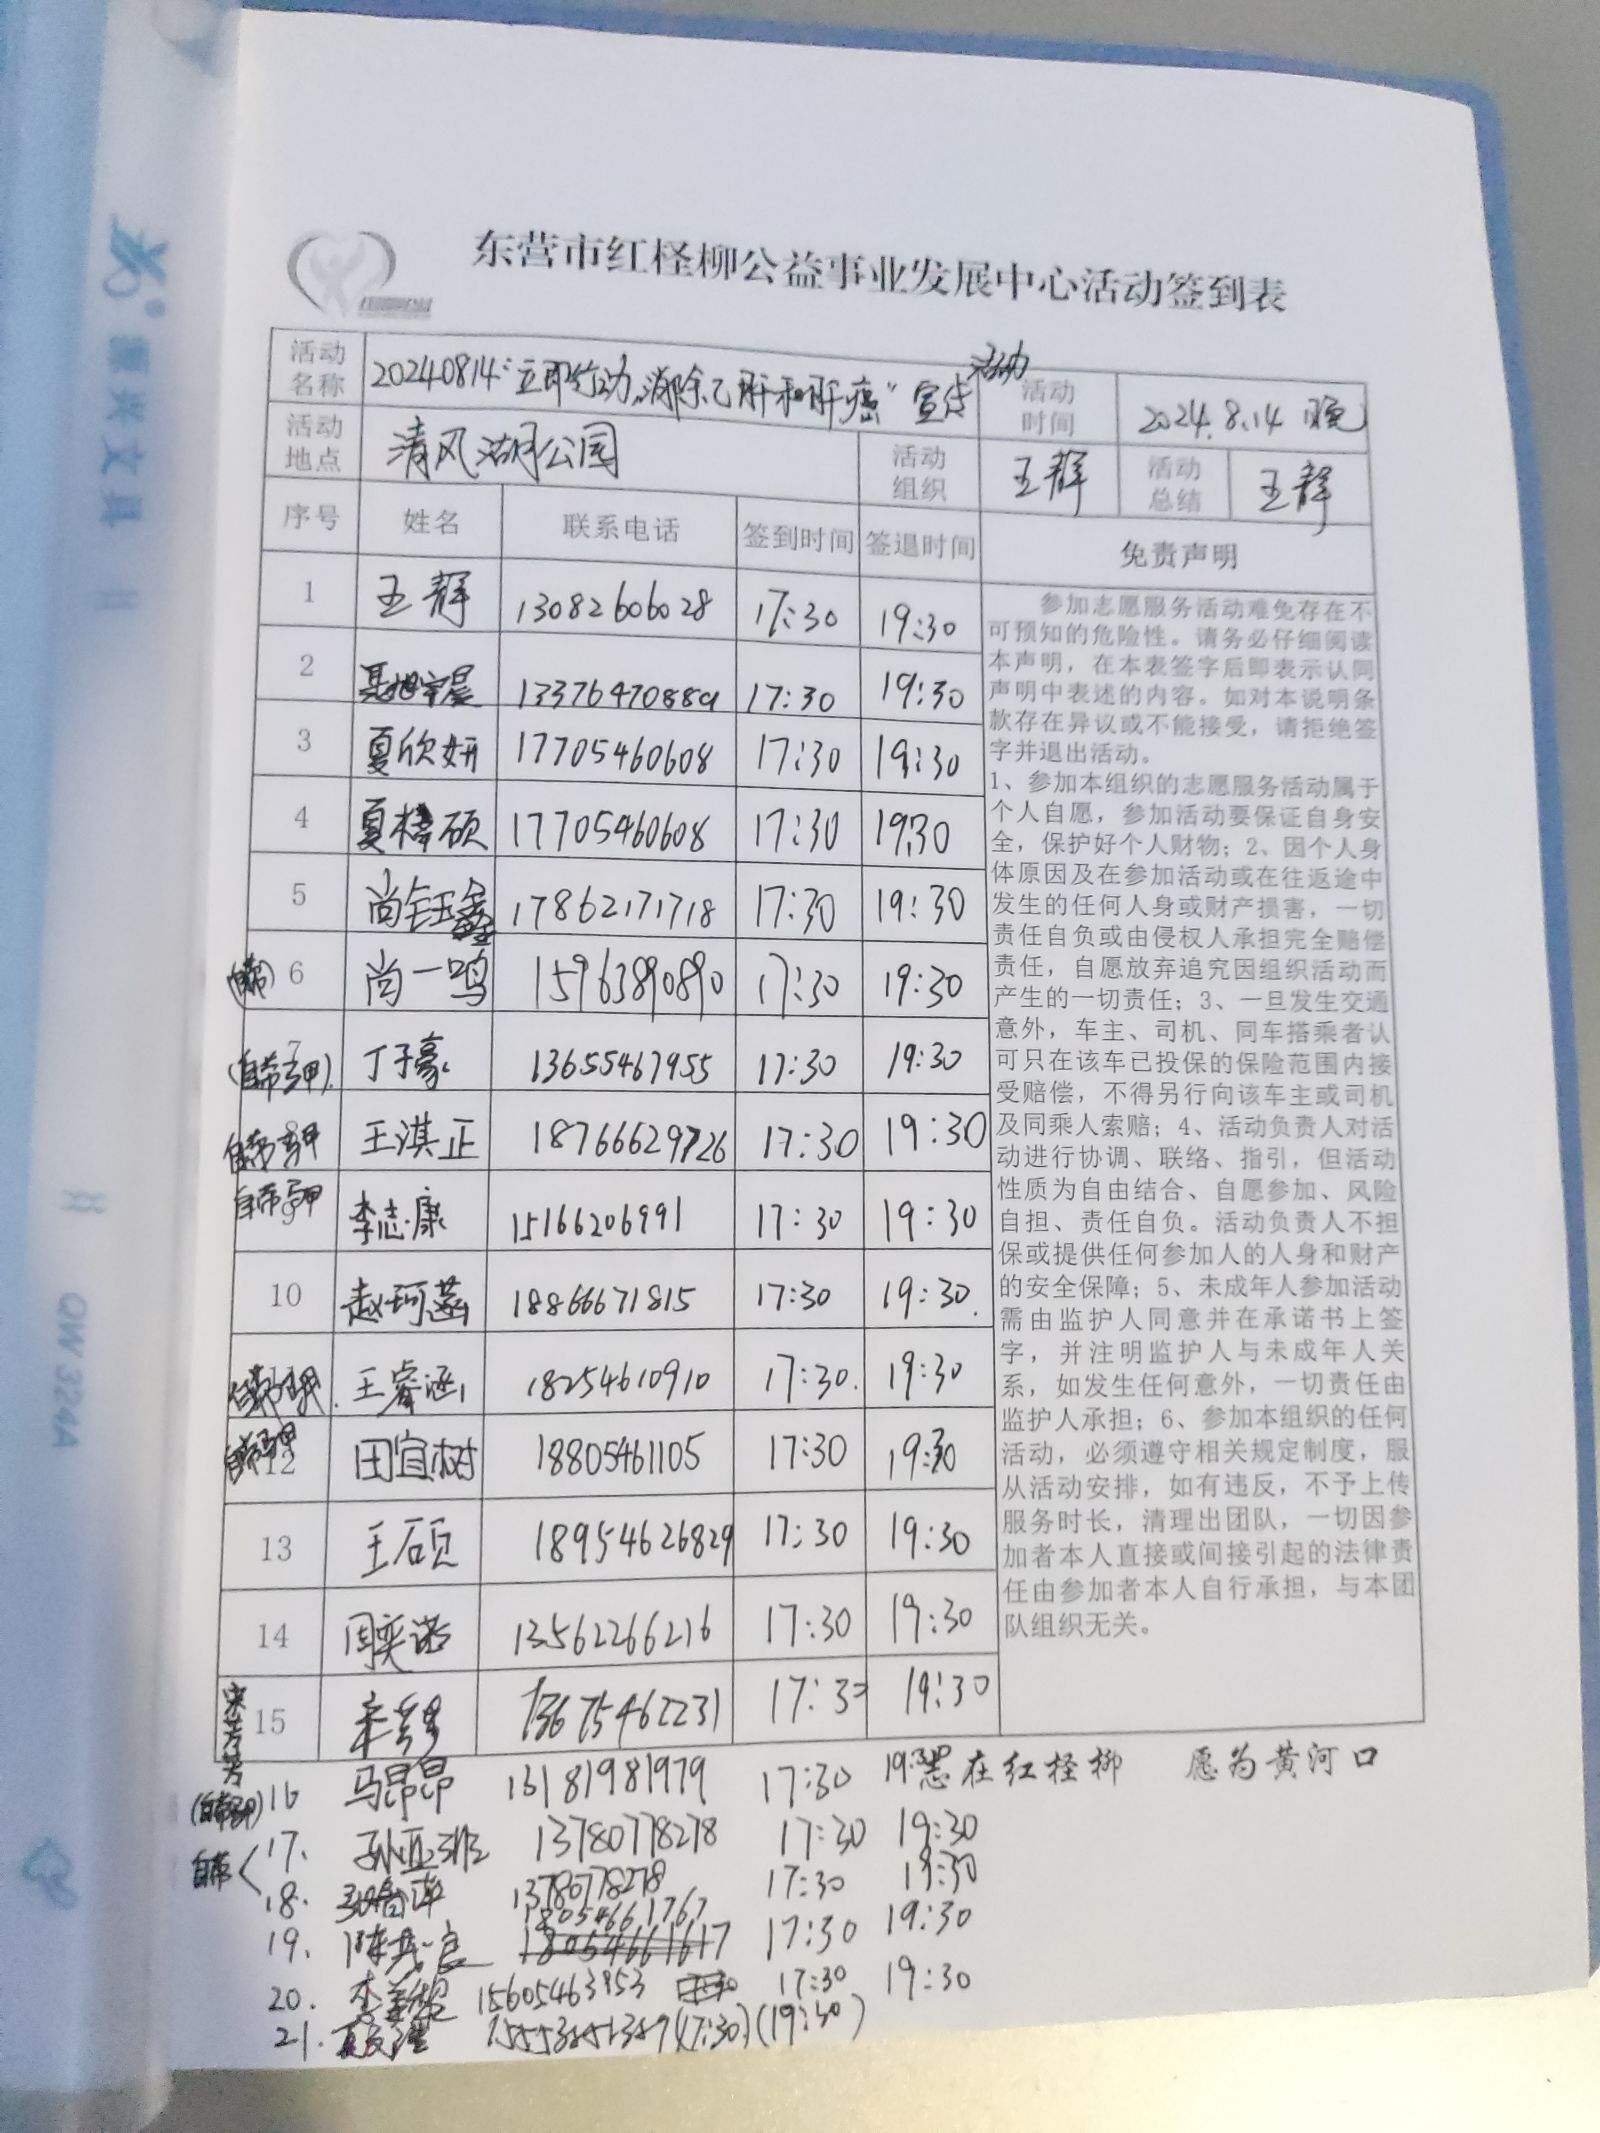 东营市红柽柳公益事业发展中心活动签到表
活动名称 20240814“立即行动，消除乙肝和肝癌”宣传活动 活动时间 2024.8.14 晚
活动地点 清风湖公园 活动组织 王静 活动总结 王静
序号 姓名 联系电话 签到时间 签退时间 免责声明
1 王静 13082606028 17:30 19:30
2 13376470889 17:30 19:30
3 夏欣妍 17705460608 17:30 19:30
4 夏梓硕 17705460608 17:30 19:30
5 尚钰鑫 17862171718 17:30 19:30
(自带) 6 尚一鸣 15963890890 17:30 19:30
(自带马甲) 7 丁子豪 13655467955 17:30 19:30
自带马甲 8 王淇正 18766629726 17:30 19:30
自带马甲 9 李志康 15166206991 17:30 19:30
10 赵珂菡 18866671815 17:30 19:30
自带马甲 11 王睿涵 18254610910 17:30 19:30
自带马甲 12 田宜树 18805461105 17:30 19:30
13 王硕 18954626829 17:30 19:30
14 周奕诺 13562266216 17:30 19:30
宋芳芳 15 宋芳芳 13675462231 17:30 19:30
参加志愿服务活动难免存在不
可预知的危险性。请务必仔细阅读
本声明，在本表签字后即表示认同
声明中表述的内容。如对本说明条
款存在异议或不能接受，请拒绝签
字并退出活动。
1、参加本组织的志愿服务活动属于
个人自愿，参加活动要保证自身安
全，保护好个人财物；2、因个人身
体原因及在参加活动或在往返途中
发生的任何人身或财产损害，一切
责任自负或由侵权人承担完全赔偿
责任，自愿放弃追究因组织活动而
产生的一切责任；3、一旦发生交通
意外，车主、司机、同车搭乘者认
可只在该车已投保的保险范围内接
受赔偿，不得另行向该车主或司机
及同乘人索赔；4、活动负责人对活
动进行协调、联络、指引，但活动
性质为自由结合、自愿参加、风险
自担、责任自负。活动负责人不担
保或提供任何参加人的人身和财产
的安全保障；5、未成年人参加活动
需由监护人同意并在承诺书上签
字，并注明监护人与未成年人关
系，如发生任何意外，一切责任由
监护人承担；6、参加本组织的任何
活动，必须遵守相关规定制度，服
从活动安排，如有违反，不予上传
服务时长，清理出团队，一切因参
加者本人直接或间接引起的法律责
任由参加者本人自行承担，与本团
队组织无关。
志在红柽柳 愿为黄河口
(自带马甲) 16 马昂昂 13181981979 17:30 19:30
自带 17. 13780778278 17:30 19:30
18. 13780778278 17:30 19:30
19. 陈茂良 18054661767 18054661617 17:30 19:30
20. 15605463953 17:30 19:30
21. (17:30) (19:30)
源兴文具
QW324A